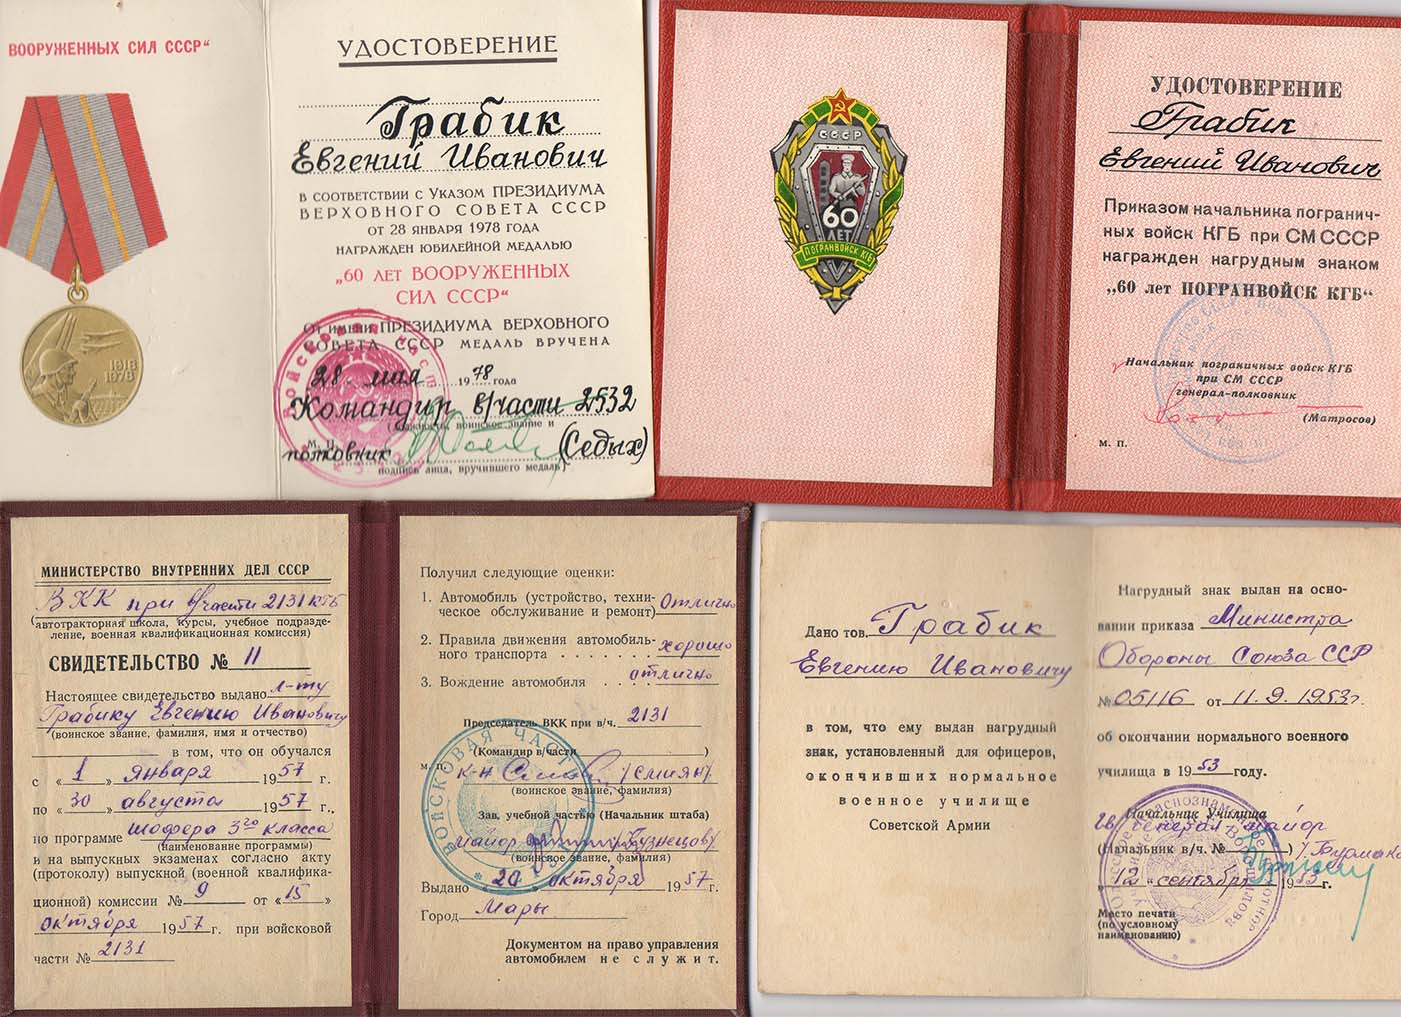 ВООРУЖЕННЫХ СИЛ СССР“
1918
1978
УДОСТОВЕРЕНИЕ
Грабик
Евгений Иванович
В СООТВЕТСТВИИ С УКАЗОМ ПРЕЗИДИУМА
ВЕРХОВНОГО СОВЕТА СССР
ОТ 28 ЯНВАРЯ 1978 ГОДА
НАГРАЖДЕН ЮБИЛЕЙНОЙ МЕДАЛЬЮ
„60 ЛЕТ ВООРУЖЕННЫХ
СИЛ СССР“
От имени ПРЕЗИДИУМА ВЕРХОВНОГО
СОВЕТА СССР МЕДАЛЬ ВРУЧЕНА
28 мая 1978 года
Командир в/части 2532
(должность, воинское звание и
М. П.
полковник (Седых)
подпись лица, вручившего медаль)
СССР
60
ЛЕТ
ПОГРАНВОЙСК КГБ
V
УДОСТОВЕРЕНИЕ
Грабик
Евгений Иванович
Приказом начальника погранич-
ных войск КГБ при СМ СССР
награжден нагрудным знаком
„60 лет ПОГРАНВОЙСК КГБ“
Начальник пограничных войск КГБ
при СМ СССР
генерал-полковник
(Матросов)
м. п.
МИНИСТЕРСТВО ВНУТРЕННИХ ДЕЛ СССР
ВКК при в/части 2131 КГБ
(автотракторная школа, курсы, учебное подразде-
ление, военная квалификационная комиссия)
СВИДЕТЕЛЬСТВО № 11
Настоящее свидетельство выдано л-ту
Грабику Евгению Ивановичу
(воинское звание, фамилия, имя и отчество)
в том, что он обучался
с «1» января 1957 г.
по «30» августа 1957 г.,
по программе шофера 3го класса
(наименование программы)
и на выпускных экзаменах согласно акту
(протоколу) выпускной (военной квалифика-
ционной) комиссии № 9 от «15»
октября 1957 г. при войсковой
части № 2131
Получил следующие оценки:
1. Автомобиль (устройство, техни-
ческое обслуживание и ремонт) Отлично
2. Правила движения автомобиль-
ного транспорта хорошо
3. Вождение автомобиля отлично
Председатель ВКК при в/ч. 2131
(Командир в/части )
м. п. к-н
(воинское звание, фамилия)
Зав. учебной частью (Начальник штаба)
майор /Кузнецов/
(воинское звание, фамилия)
ВОЙСКОВАЯ ЧАСТЬ
Выдано «20» октября 1957 г.
Город Мары
Документом на право управления
автомобилем не служит.
Дано тов. Грабик
Евгению Ивановичу
в том, что ему выдан нагрудный
знак, установленный для офицеров,
окончивших нормальное
военное училище
Советской Армии
Нагрудный знак выдан на осно-
вании приказа Министра
Обороны Союза ССР
№ 05116 от 11.9.1953 г.
об окончании нормального военного
училища в 1953 году.
Начальник Училища
гв. генерал майор
(Начальник в/ч. № )
«12» сентября 1953 г.
Место печати
(по условному
наименованию)